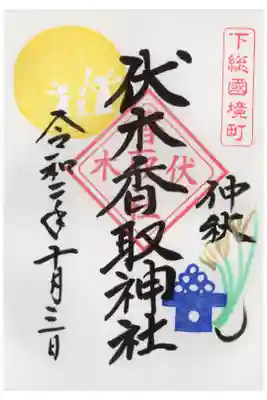 下総國境町
仲秋
伏木香取神社
伏木
令和二年十月三日